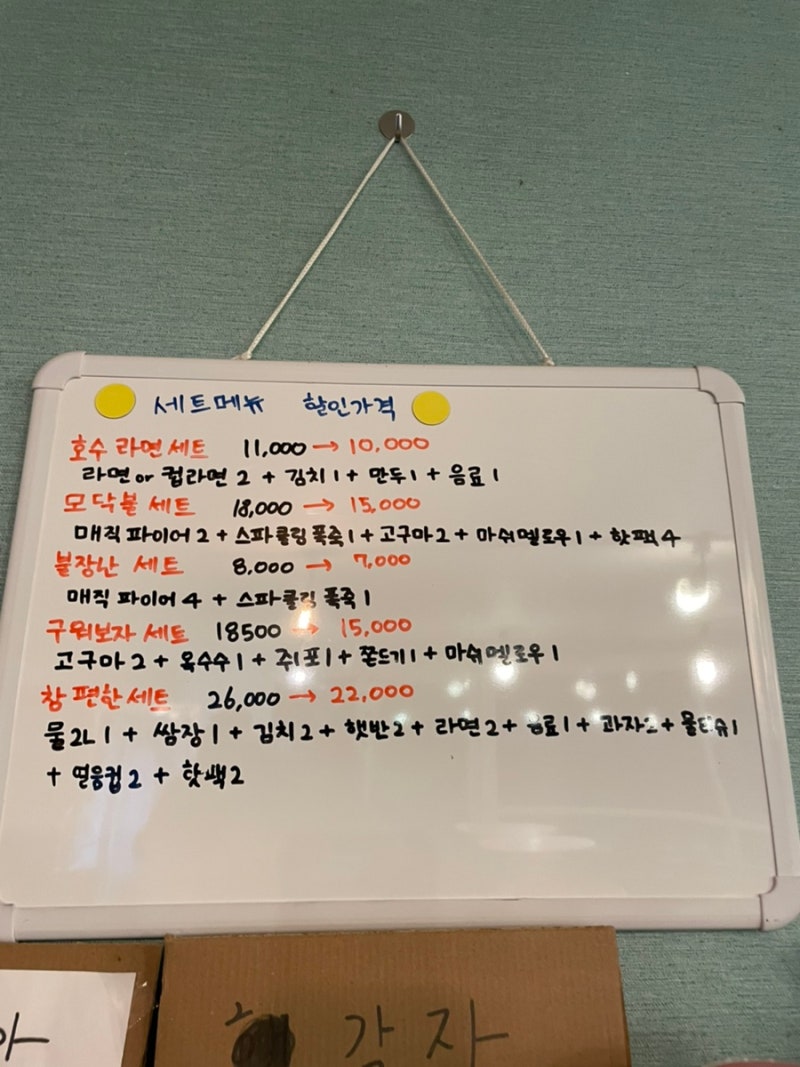 세트메뉴 할인가격
호수 라면 세트 11,000 → 10,000
라면 or 컵라면 2 + 김치 1 + 만두 1 + 음료 1
모닥불 세트 18,000 → 15,000
매직 파이어 2 + 스파클링 폭죽 1 + 고구마 2 + 마쉬멜로우 1 + 핫팩 4
불장난 세트 8,000 → 7,000
매직 파이어 4 + 스파클링 폭죽 1
구워보자 세트 18500 → 15,000
고구마 2 + 옥수수 1 + 쥐포 1 + 쫀드기 1 + 마쉬멜로우 1
참 편한 세트 26,000 → 22,000
물 2L 1 + 쌈장 1 + 김치 2 + 햇반 2 + 라면 2 + 음료 1 + 과자 2 + 물티슈 1
+ 컵 2 + 핫팩 2
감자